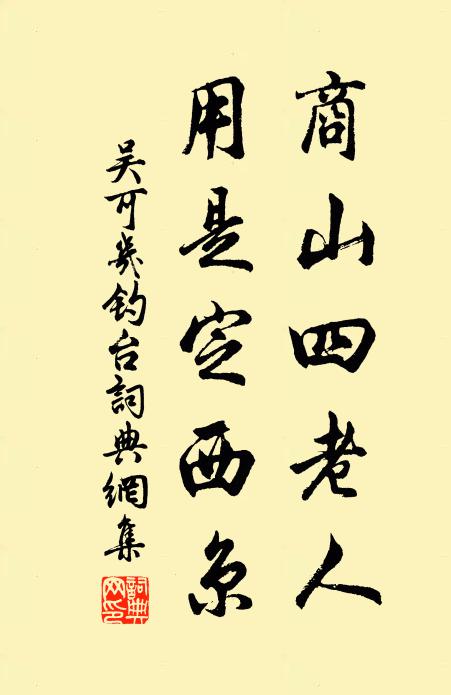 商山四老人
用是定西京
吴可幾钓台詞典網集
詞典网印